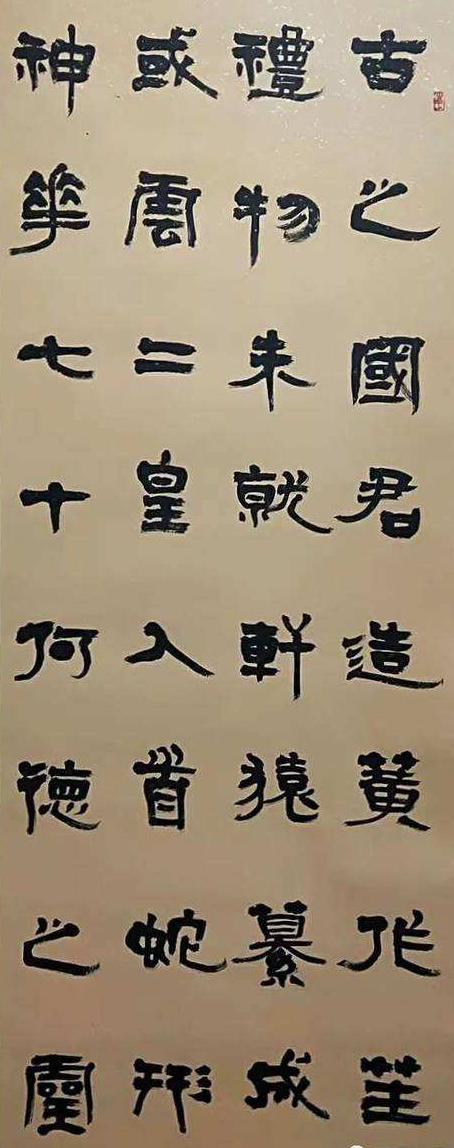 古之國君造簧作笙
禮物未就軒猿纂成
或雲二皇人首蛇形
神華七十何德之靈